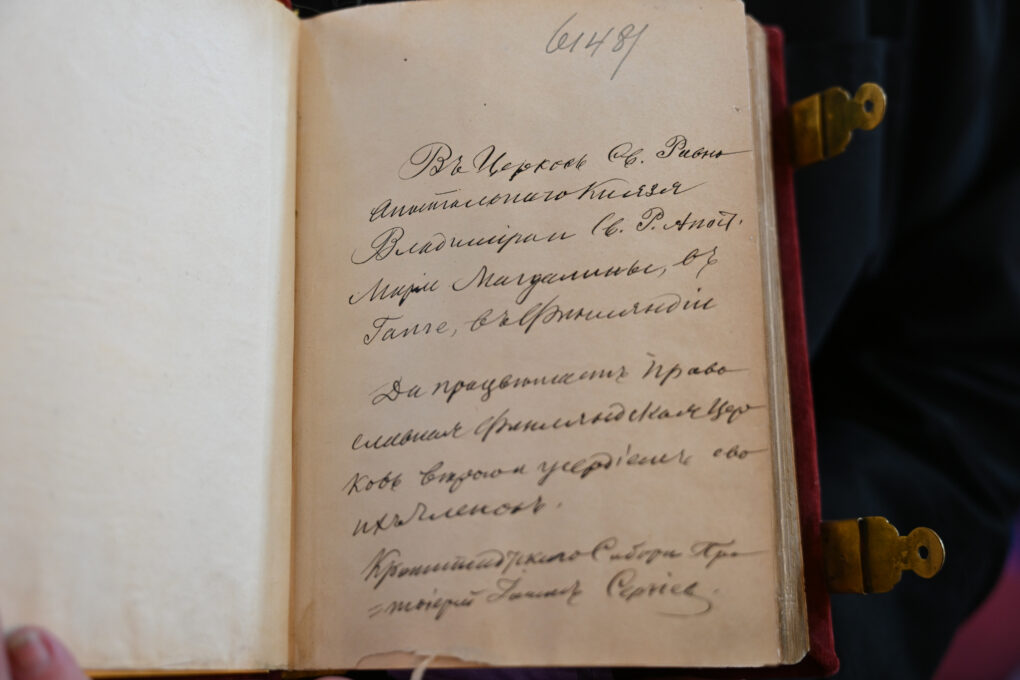 61481
Въ Церковь Св. Равно
апостольнаго Князя
Владиміра и Св. Р. Апост.
Маріи Магдалины, въ
Ганге, въ Финляндіи
Да процвѣтаетъ Право
славная Финляндская Цер
ковь вѣрою и усердіемъ сво
ихъ членовъ.
Кронштадтскаго Собора Про
=тоіерей Іоаннъ Сергіев.